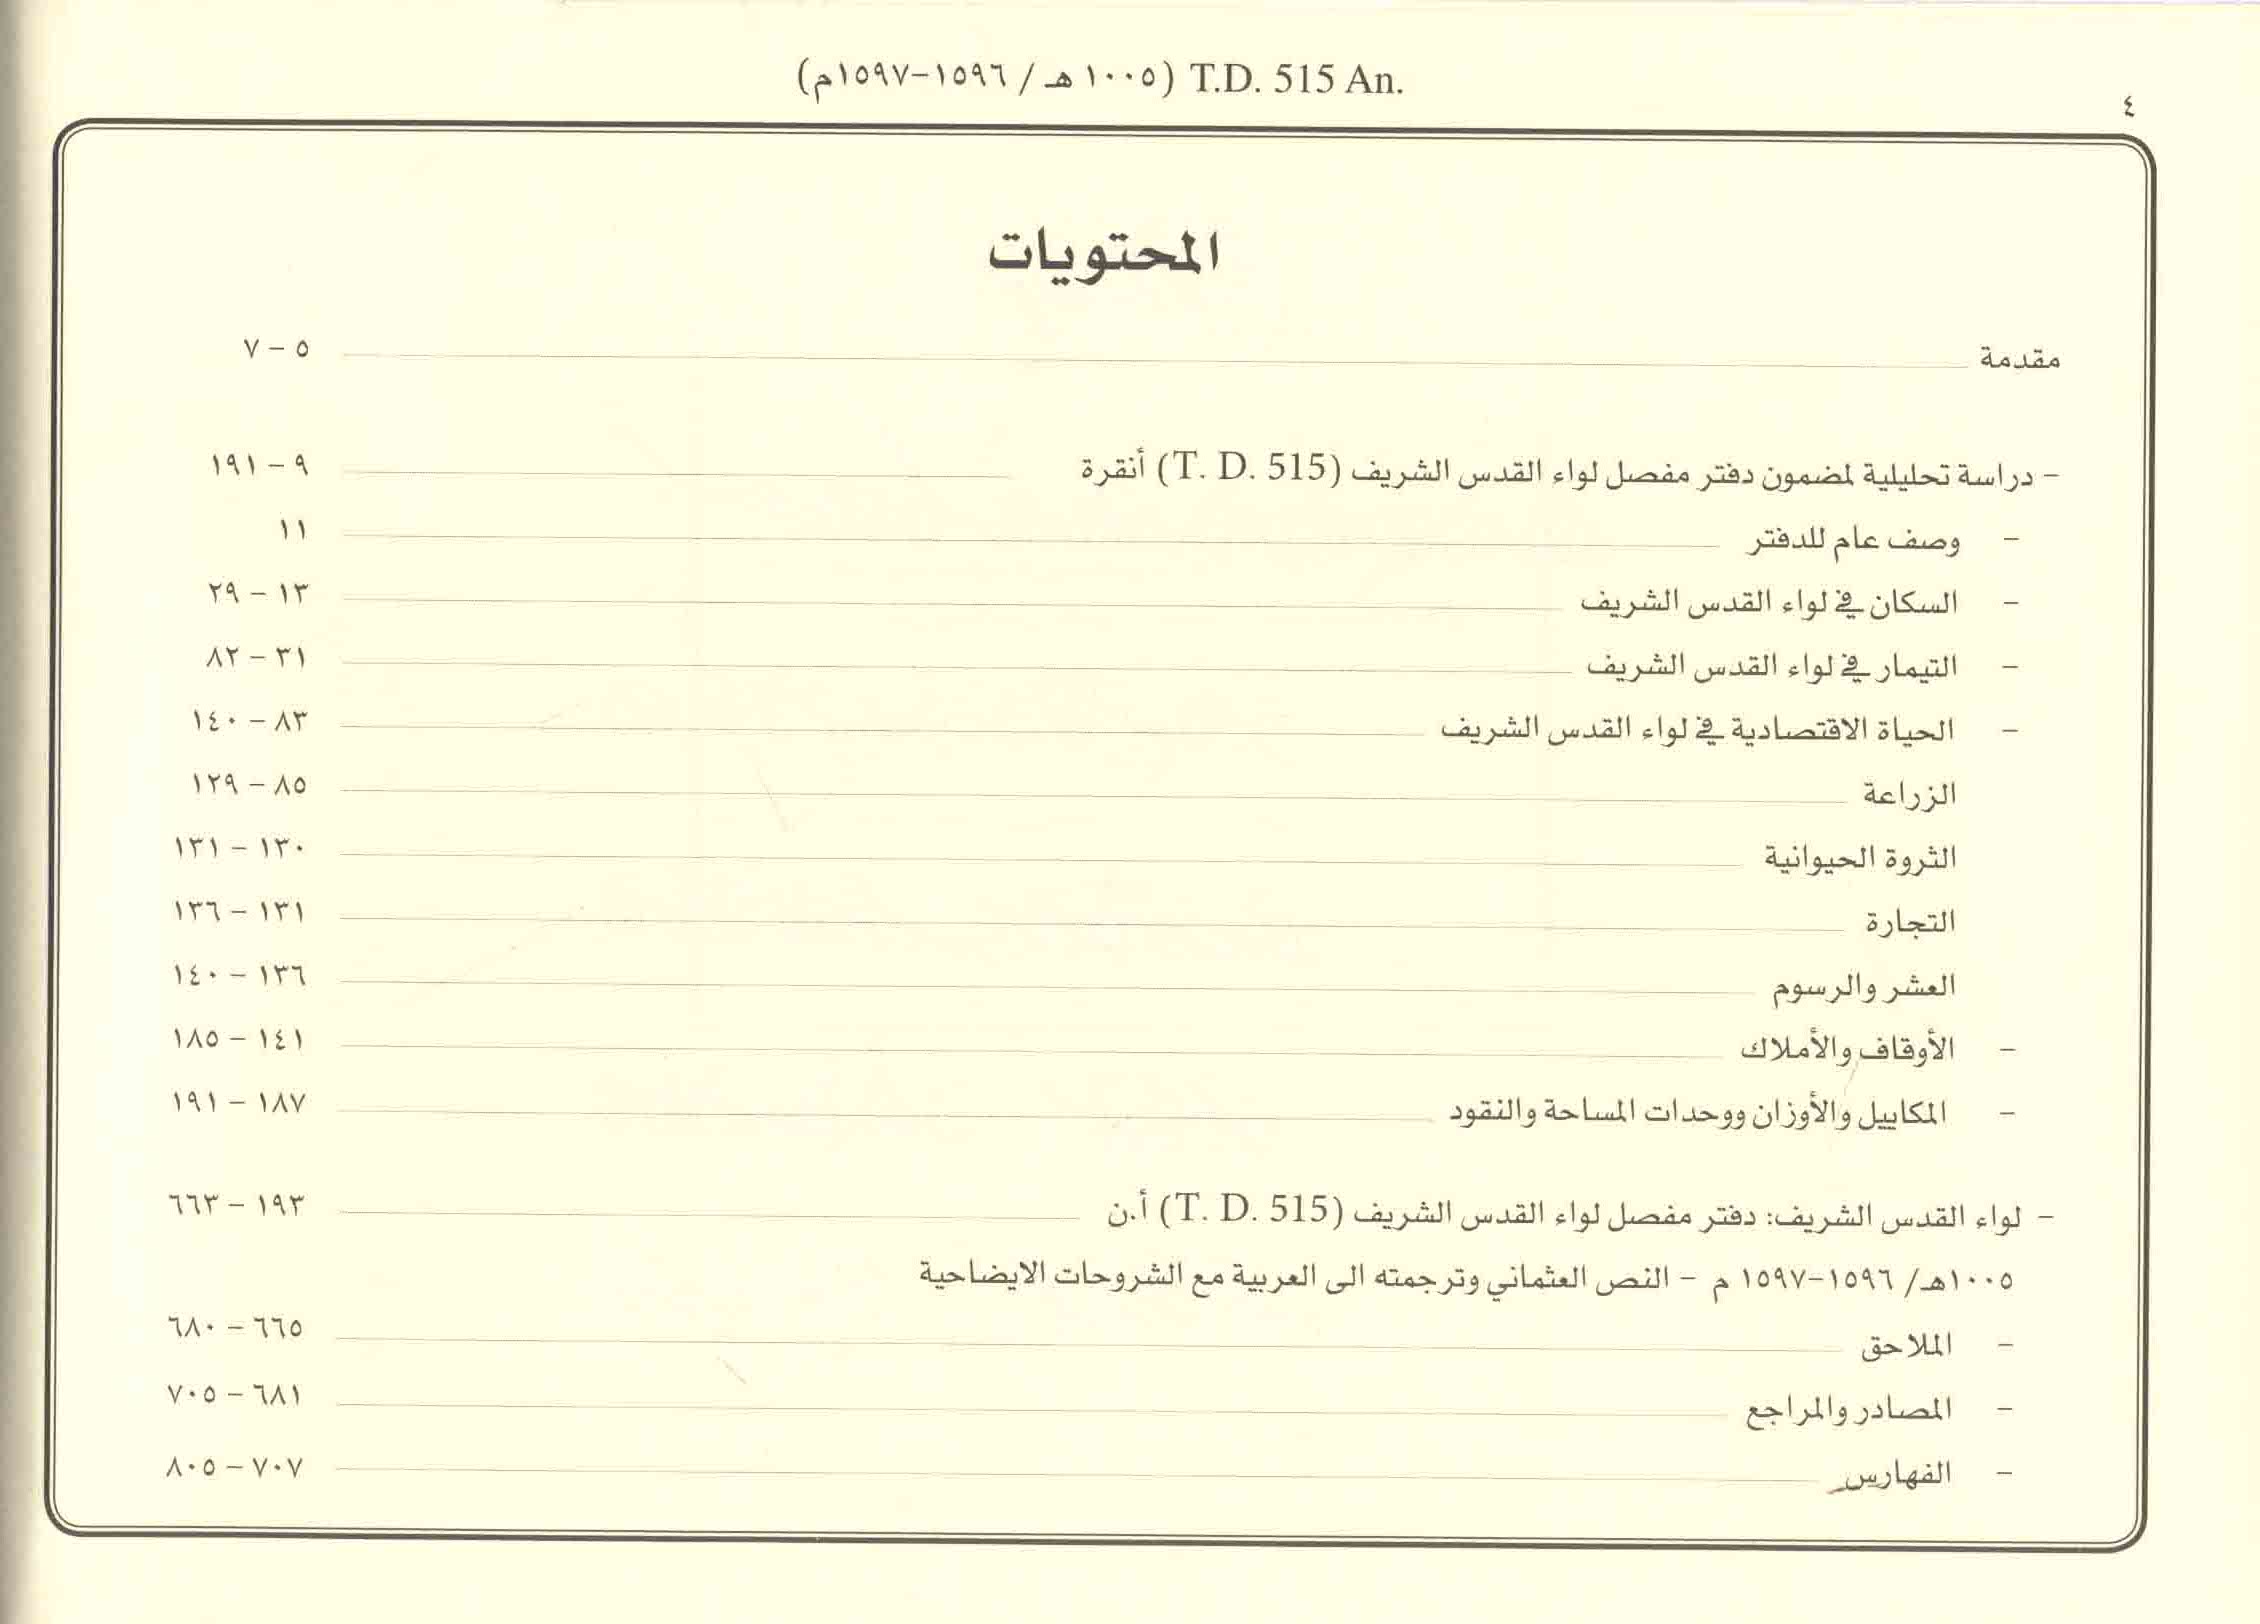 T.D. 515 An. (١٠٠٥ هـ / ١٥٩٦-١٥٩٧م)
٤
المحتويات
مقدمة ٥ - ٧
- دراسة تحليلية لمضمون دفتر مفصل لواء القدس الشريف (T. D. 515) أنقرة ٩ - ١٩١
- وصف عام للدفتر ١١
- السكان في لواء القدس الشريف ١٣ - ٢٩
- التيمار في لواء القدس الشريف ٣١ - ٨٢
- الحياة الاقتصادية في لواء القدس الشريف ٨٣ - ١٤٠
الزراعة ٨٥ - ١٢٩
الثروة الحيوانية ١٣٠ - ١٣١
التجارة ١٣١ - ١٣٦
العشر والرسوم ١٣٦ - ١٤٠
- الأوقاف والأملاك ١٤١ - ١٨٥
- المكاييل والأوزان ووحدات المساحة والنقود ١٨٧ - ١٩١
- لواء القدس الشريف: دفتر مفصل لواء القدس الشريف (T. D. 515) أ.ن ١٩٣ - ٦٦٣
١٠٠٥هـ/ ١٥٩٦-١٥٩٧ م - النص العثماني وترجمته الى العربية مع الشروحات الايضاحية
- الملاحق ٦٦٥ - ٦٨٠
- المصادر والمراجع ٦٨١ - ٧٠٥
- الفهارس ٧٠٧ - ٨٠٥